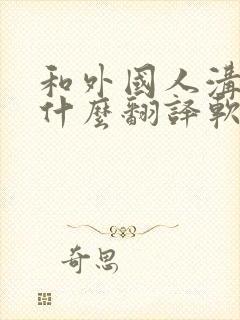 和外國人溝
什麼翻譯軟
奇思